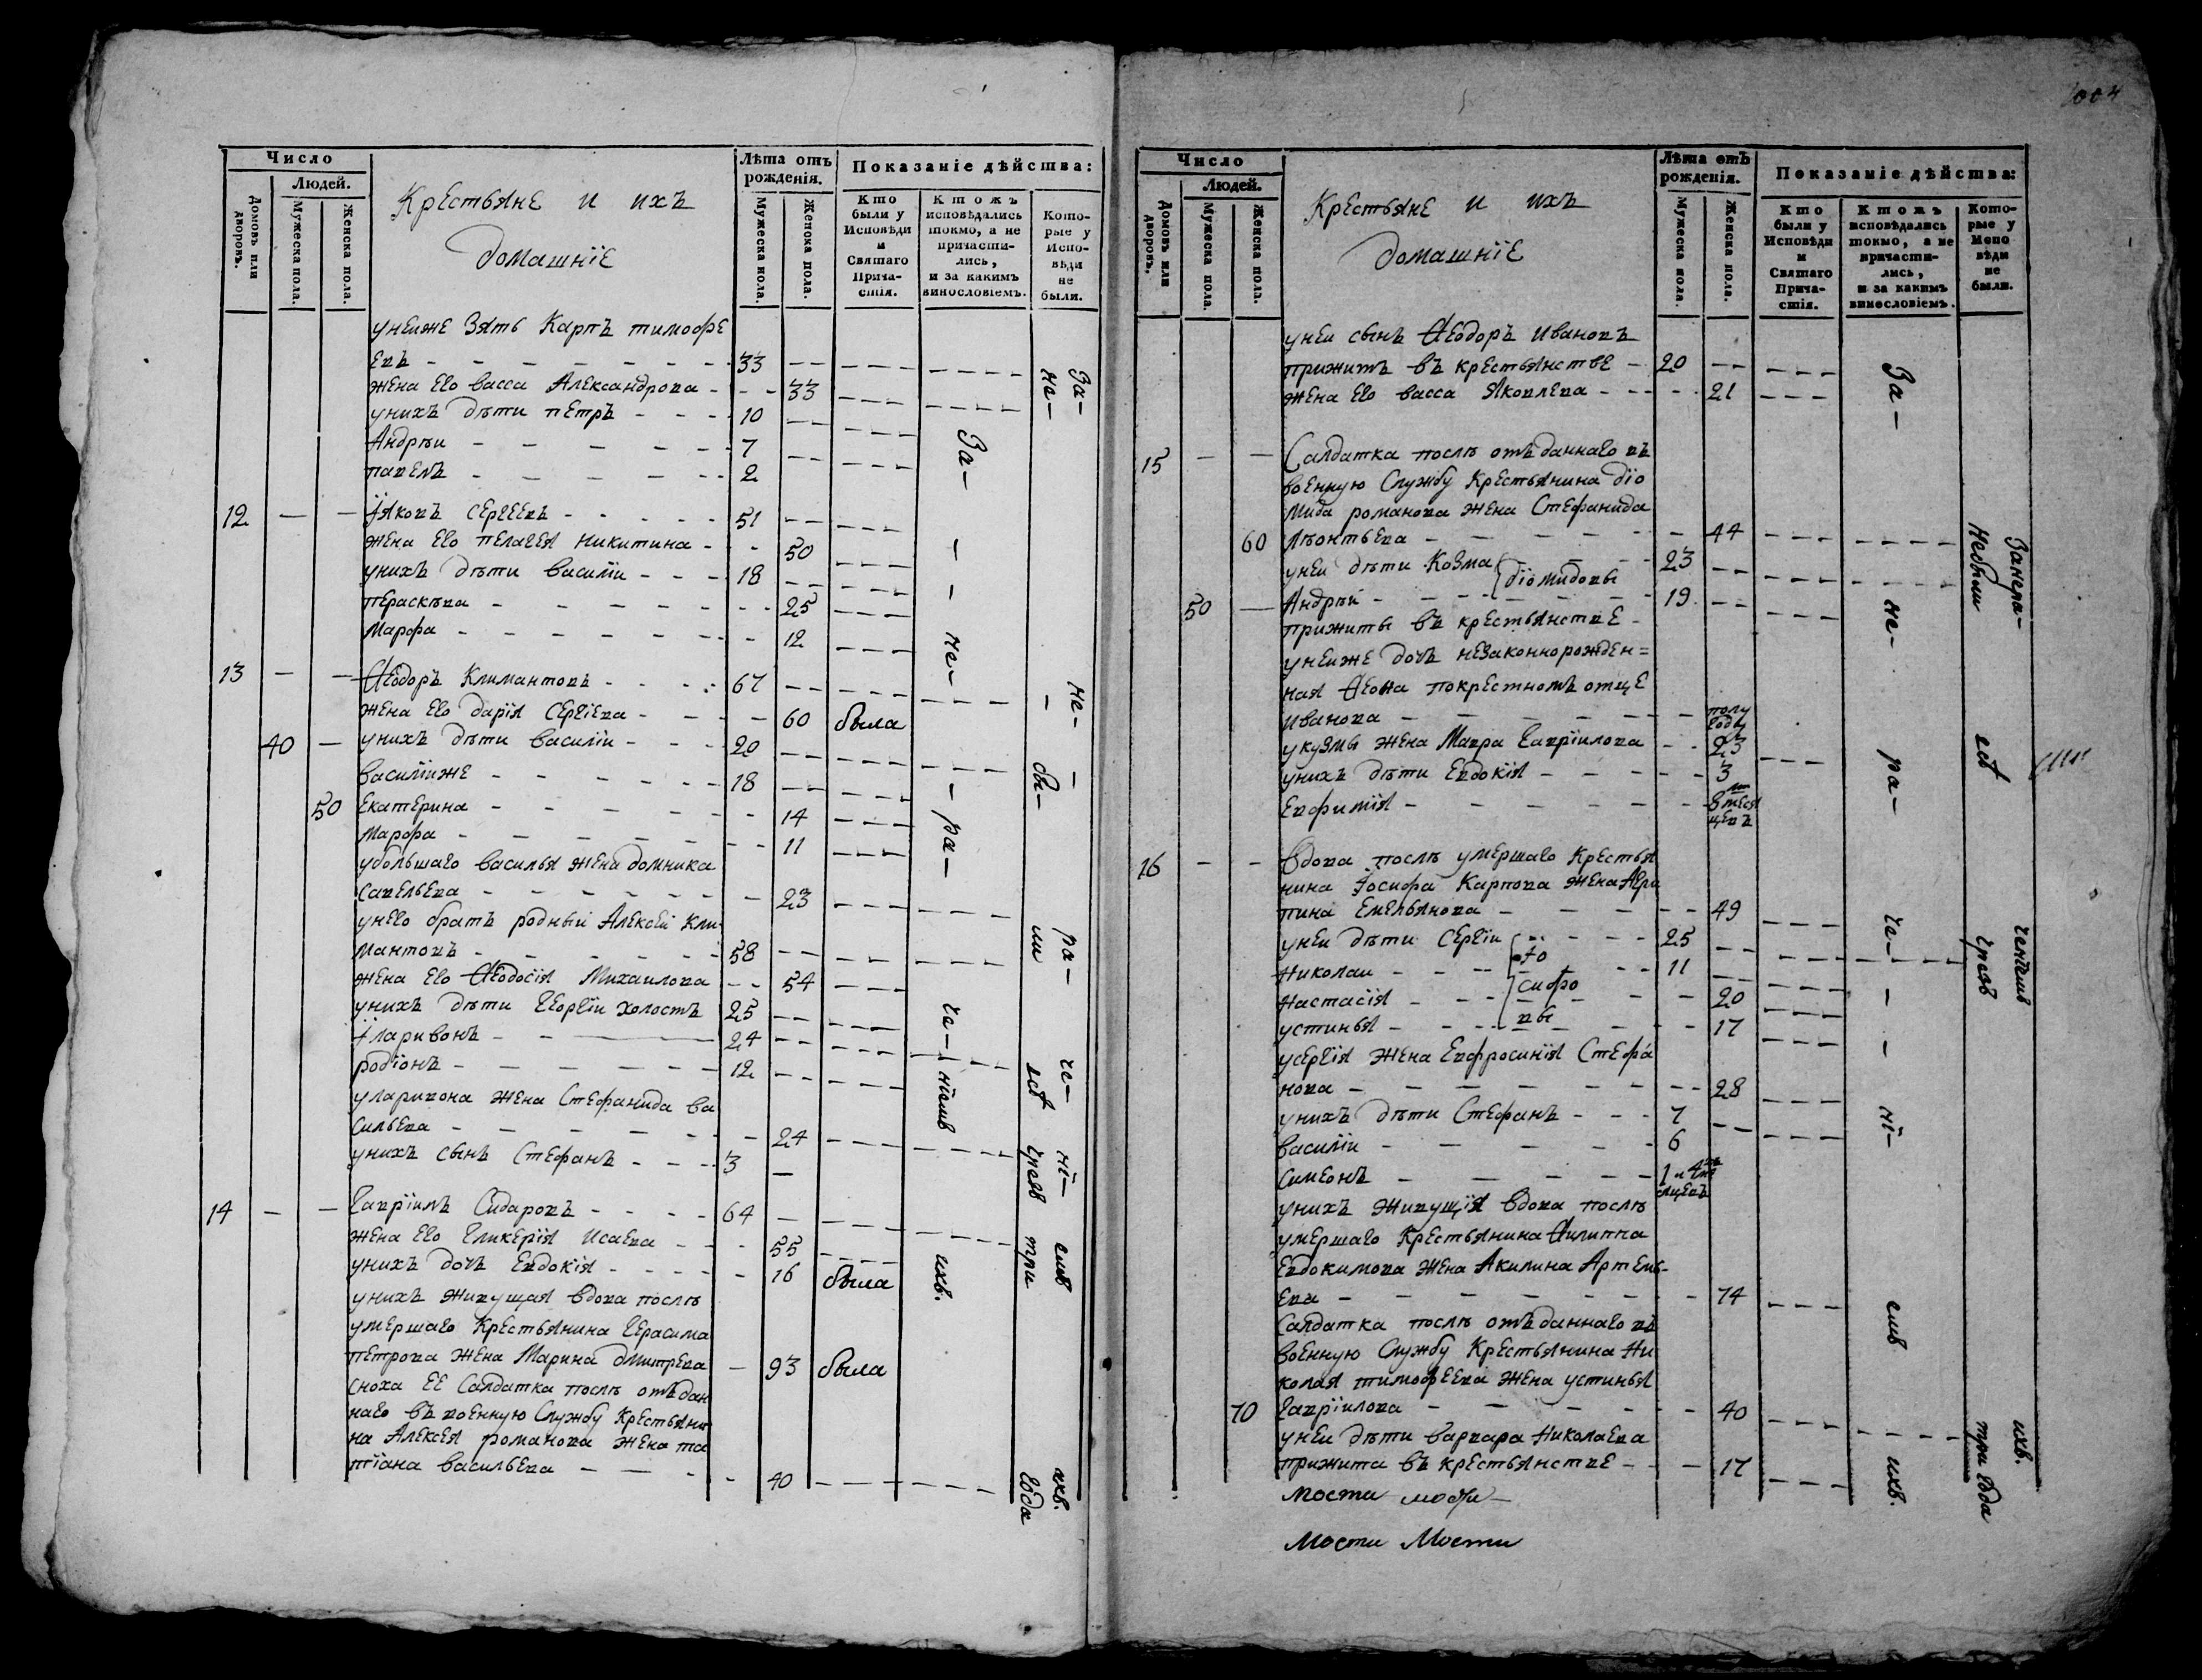 1004
Число
Людей.
Домовъ или дворовъ.
Мужеска пола.
Женска пола.
Крестьяне и ихъ
домашнїе
Лѣта отъ рожденїя.
Мужеска пола.
Женска пола.
Показанїе дѣйства:
Кто были у Исповѣди и Святаго Прича-стїя.
Ктожъ исповѣдались токмо, а не причасти-лись, и за какимъ винословїемъ.
Кото-рые у Испо-вѣди не были.
унеиже Зять Карпъ тимофе
евъ - 33
жена его васса Александрова - 33
унихъ дѣти петръ - 10
Андрѣи - 7
павелъ - 2
12 — — Їяковъ Сергеевъ - 51
жена его пелагея никитина - 50
унихъ дѣти василїи - 18
Перасковa - 25
Марфа - 12
13 — — Ѳеодоръ Климантовъ - 67
жена его дарїя Сергїева - 60 была
40 — унихъ дѣти василїи - 20
василїиже - 18
50 Екатерина - 14
Марфа - 11
убольшаго василья жена домника
Савельева - 23
унего братъ родный Алексѣй Кли
мантовъ - 58
жена его Ѳеодосїя Михаилова - 54
унихъ дѣти Георгїи холостъ 25
Їларивонъ - 24
родїонъ - 12
уларивона жена Стефанида ва
сильева - 24
унихъ сынъ Стефанъ - 3
14 — — Гаврїилъ Сидаровъ - 64
жена его Гликерїя Исаева - 55
унихъ дочь Евдокїя - 16 была
унихъ живущая вдова послѣ
умершаго крестьянина Герасима
петрова жена Марина дмитрева - 93 была
сноха ее салдатка послѣ отъдан
наго въ военную Службу крестьяни
на Алексея романова жена та
тїана васильева - 40
За-
не-
ра-
че-
нїемъ
ихъ.
За-
не-
не-
бы-
ра-
ли
че-
нї-
чрезъ
емъ
три
ихъ.
года
Число
Людей.
Домовъ или дворовъ.
Мужеска пола.
Женска пола.
Крестьяне и ихъ
домашнїе
Лѣта отъ рожденїя.
Мужеска пола.
Женска пола.
Показанїе дѣйства:
Кто были у Исповѣди и Святаго Прича-стїя.
Ктожъ исповѣдались токмо, а не причасти-лись, и за какимъ винословїемъ.
Кото-рые у Испо-вѣди не были.
унеи сынъ Ѳеодоръ Ивановъ
прижитъ въ крестьянстве - 20
жена его васса Яковлева - 21
15 — — Салдатка послѣ отъданнаго въ
военную Службу Крестьянина дїо
мида романова жена Стефанида
60 Лѣонтьева - 44
унеи дѣти Козма - дїомидовы 23
50 — Андрѣй - 19
прижиты въ крестьянстве -
унеиже дочь незаконнорожден=
ная Ѳеона покрестномъ отце
иванова - полу года
укузмы жена Мавра Гаврїилова - 23
унихъ дѣти Евдокїя - 3
Евфимїя - 8 меся цевъ
16 — — Вдова послѣ умершаго Крестья
нина Їосифа Карпова жена Агри
пина Емельянова - 49
унеи дѣти Сергїи - 25
Їо
Николаи - 11
сифо
Настасїя - 20
вы
устинья - 17
усергїя жена Евфросинїя Стефа
нова - 28
унихъ дѣти Стефанъ - 7
василїи - 6
Симеонъ - 1 и 4
унихъ живущїя вдова послѣ
умершаго крестьянина Филиппа
Евдокимова жена Акилина Артемь-
ева - 74
Салдатка послѣ отъданнаго въ
военную Службу Крестьянина Ни
колая тимофеева жена устинья
70 Гаврїилова - 40
унеи дѣти варвара Николаева
прижита въ крестьянстве - 17
мости
мости Мости
За-
не-
ра-
че-
нї-
емъ
ихъ.
Занера-
небыли
ченїемъ
чрезъ
ихъ.
три года